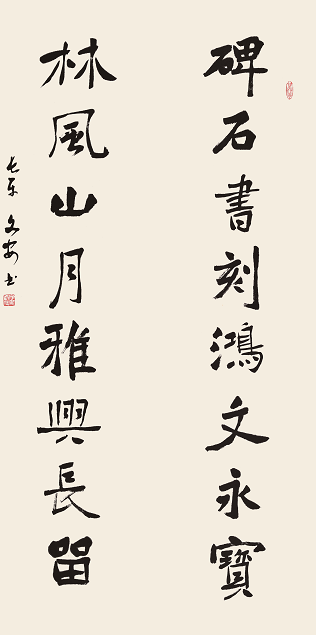 碑石書刻鴻文永寶
林風山月雅興長留
文安书